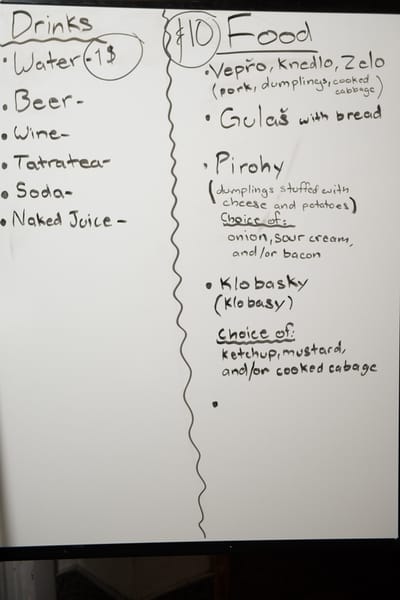 Drinks
• Water - 1$
• Beer -
• Wine -
• Tatratea -
• Soda -
• Naked Juice -
$10 Food
• Vepřo, Knedlo, Zelo
(pork, dumplings, cooked
cabbage)
• Gulaš with bread
• Pirohy
(dumplings stuffed with
cheese and potatoes)
Choice of:
onion, sour cream,
and/or bacon
• Klobasky
(Klobasy)
Choice of:
ketchup, mustard,
and/or cooked cabage
•